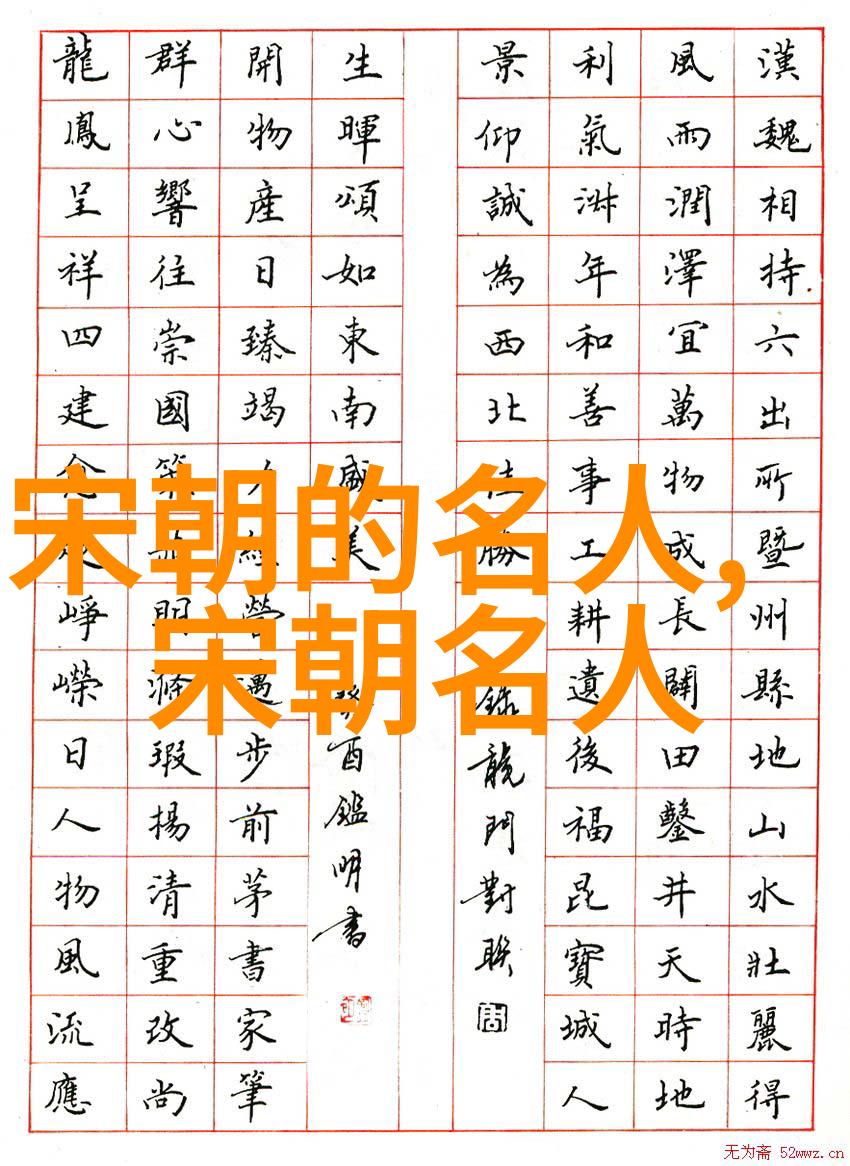 漢魏相持六出所暨州縣地山水壯麗得
風雨潤澤宜萬物成長闢田鑿井天時地
利氣淋年和善事工耕遺後福昆寶城人
景仰誠為西北佳勝
錄龍門對聯
生暉頌如東南盛美
癸酉鑑明書
開物產日臻竭人經營邁步前茅書家筆
群心響往崇國策明滌瑕揚清重改尚
龍鳳呈祥四建念崢嶸日人物風流應
宋朝的名人,
宋朝名人
无为斋 52wwz.cn